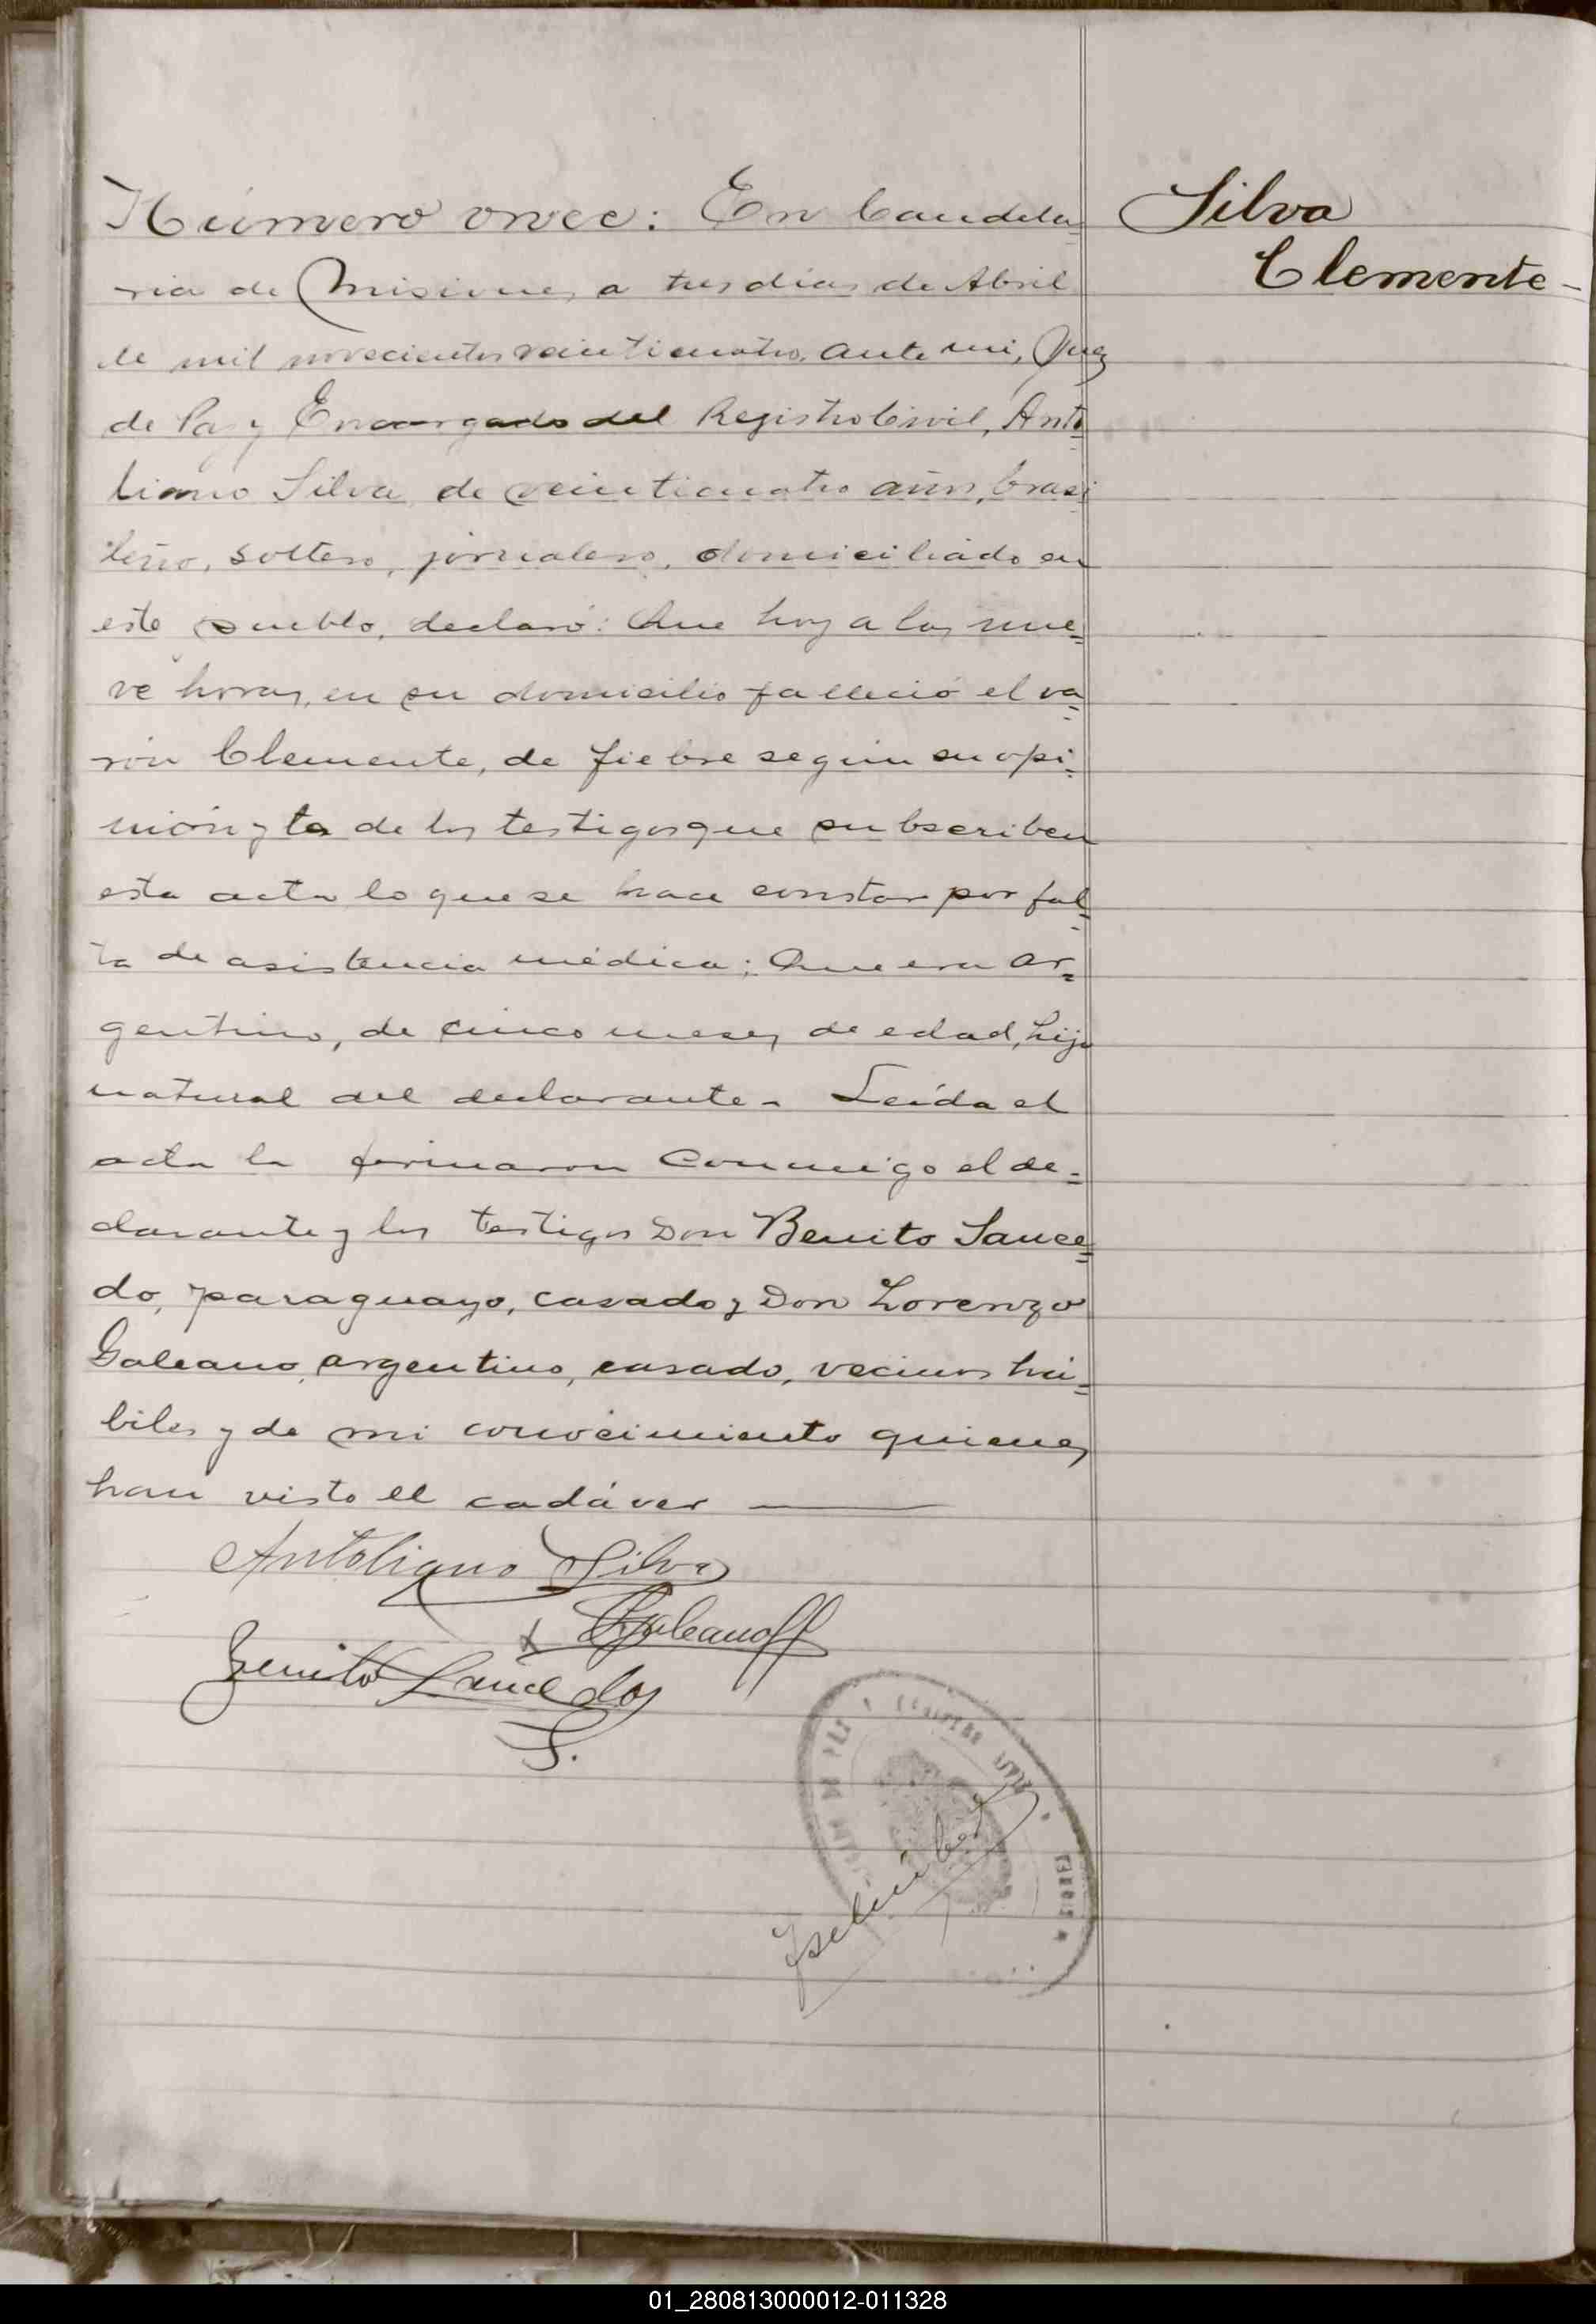 Número once: En Candela=
ria de Misiones, a tres días de Abril
de mil novecientos veinticuatro, ante mi, Juez
de Paz y Encargado del Registro Civil, Anto
liano Silva, de veinticuatro años, brasi
leño, soltero, jornalero, domiciliado en
este pueblo, declaró: Que hoy a las nue=
ve horas, en su domicilio falleció el va=
rón Clemente, de fiebre según su opi=
nión y la de los testigos que subscriben
esta acta lo que se hace constar por fal=
ta de asistencia médica; Que era ar=
gentino, de cinco meses de edad, hijo
natural del declarante. Leída el
acta la firmaron conmigo el de=
clarante y los testigos Don Benito Sauce=
do, paraguayo, casado y Don Lorenzo
Galeano, argentino, casado, vecinos há=
biles y de mi conocimiento quienes
han visto el cadáver
Silva
Clemente -
Antoliano Silva
Galeano
Benito Saucedo
S.
01_280813000012-011328